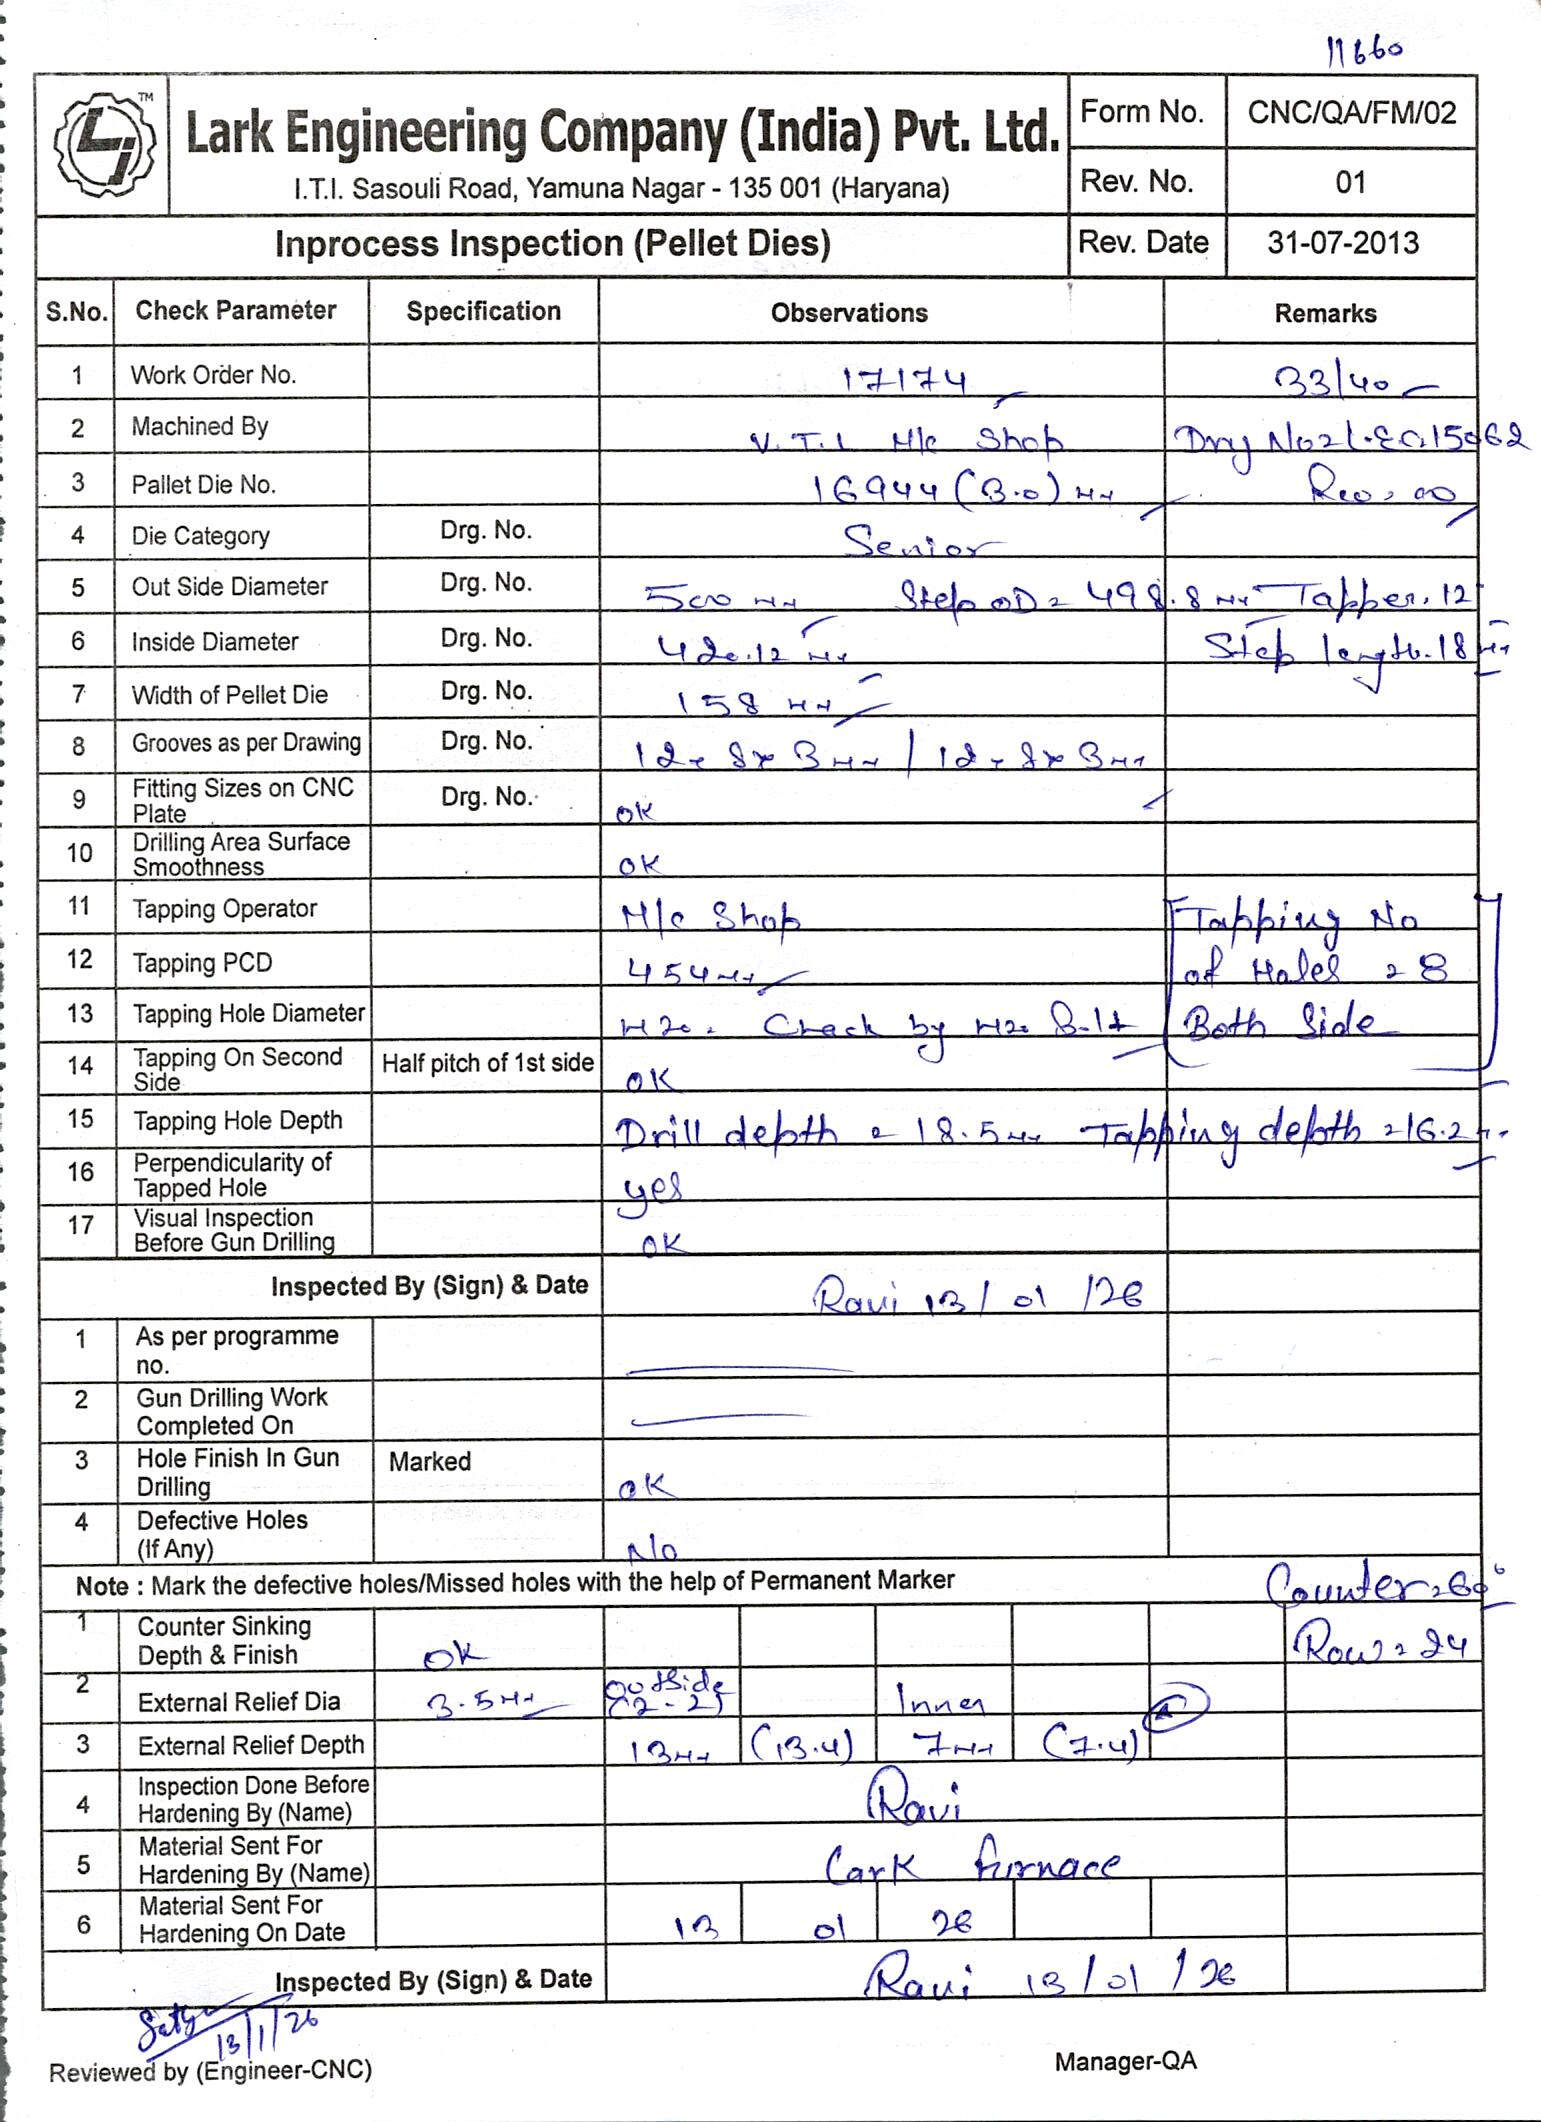 11660
TM
Lark Engineering Company (India) Pvt. Ltd.
I.T.I. Sasouli Road, Yamuna Nagar - 135 001 (Haryana)
Form No. CNC/QA/FM/02
Rev. No. 01
Inprocess Inspection (Pellet Dies) Rev. Date 31-07-2013
S.No. Check Parameter Specification Observations Remarks
1 Work Order No. 17174 33/40
2 Machined By V.T.L M/c Shop Drg No
3 Pallet Die No. 16944 (B.O) MM Rev. 00
4 Die Category Drg. No. Senior
5 Out Side Diameter Drg. No. 500 MM Step OD = 498.8 MM Tapper. 12
6 Inside Diameter Drg. No. 420.12 MM Step length. 18 MM
7 Width of Pellet Die Drg. No. 158 MM
8 Grooves as per Drawing Drg. No. 12 - 8 x 3 MM / 12 - 8 x 3 MM
9 Fitting Sizes on CNC Plate Drg. No. OK
10 Drilling Area Surface Smoothness OK
11 Tapping Operator M/c Shop Tapping No
12 Tapping PCD 454 MM of Holes = 8
13 Tapping Hole Diameter M20. Check by M20 Bolt Both Side
14 Tapping On Second Side Half pitch of 1st side OK
15 Tapping Hole Depth Drill depth = 18.5 MM Tapping depth = 16.2
16 Perpendicularity of Tapped Hole yes
17 Visual Inspection Before Gun Drilling OK
Inspected By (Sign) & Date Ravi 13/01/26
1 As per programme no.
2 Gun Drilling Work Completed On
3 Hole Finish In Gun Drilling Marked OK
4 Defective Holes (If Any) No
Note : Mark the defective holes/Missed holes with the help of Permanent Marker Counter = 60°
1 Counter Sinking Depth & Finish OK Row = 24
2 External Relief Dia 3.5 MM outside (2-2) Inner
3 External Relief Depth 13 MM (13.4) 7 MM (7.4)
4 Inspection Done Before Hardening By (Name) Ravi
5 Material Sent For Hardening By (Name) Lark furnace
6 Material Sent For Hardening On Date 13 01 26
Inspected By (Sign) & Date Ravi 13/01/26
13/1/26
Reviewed by (Engineer-CNC) Manager-QA